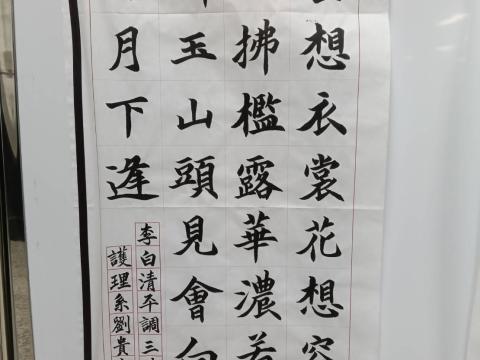 想衣裳花想容
拂檻露華濃若
玉山頭見會向
月下逢
李白清平調三
護理系劉貴